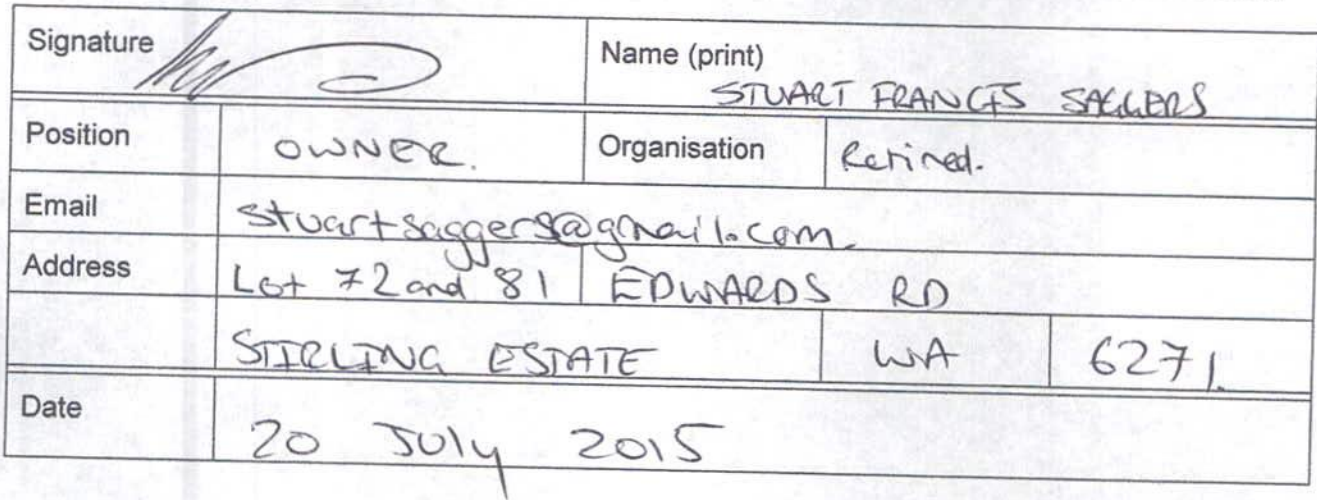 Signature
Name (print)
STUART FRANCIS SAGGERS
Position OWNER. Organisation Retired.
Email stuartsaggers@gmail.com.
Address Lot 72 and 81 EDWARDS RD
STIRLING ESTATE WA 6271.
Date 20 July 2015